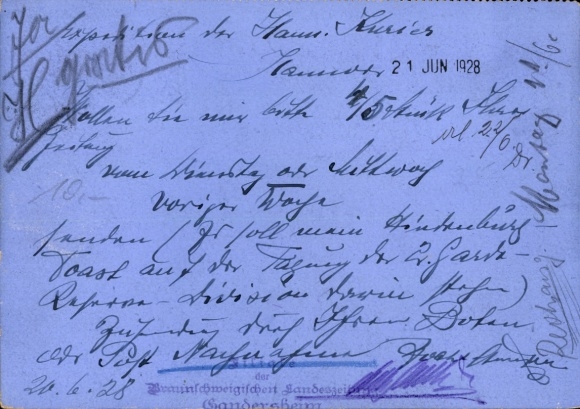 Expedition der Hann. Kurier
Hannover 21 JUN 1928
gratis
Wollen Sie mir bitte 4/5 stück Ihrer
Zeitung
vom Dienstag oder Mittwoch
10.-
voriger Woche
senden (Es soll mein Hindenburg
Toast auf der Tagung der 2. Garde-
Reserve-Division darin stehen)
Zusendung durch Ihren Boten
oder Post Nachnahme
20.6.28
der
Braunschweigischen Landeszeitung
Gandersheim